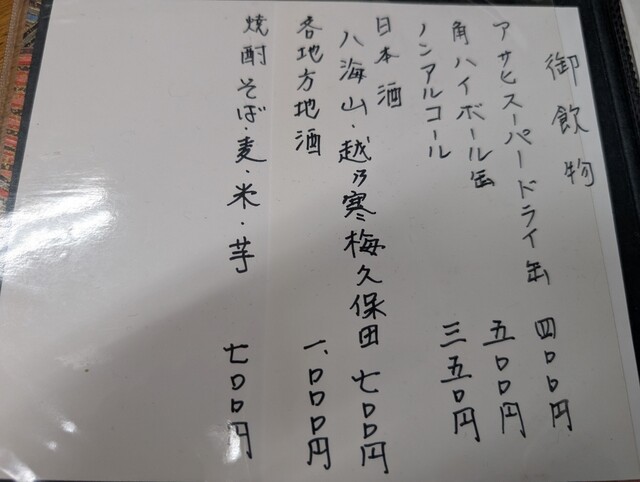 御飲物
アサヒスーパードライ缶 四〇〇円
角ハイボール缶 五〇〇円
ノンアルコール 三五〇円
日本酒
八海山・越乃寒梅久保田 七〇〇円
各地方地酒 一、〇〇〇円
焼酎そば・麦・米・芋 七〇〇円